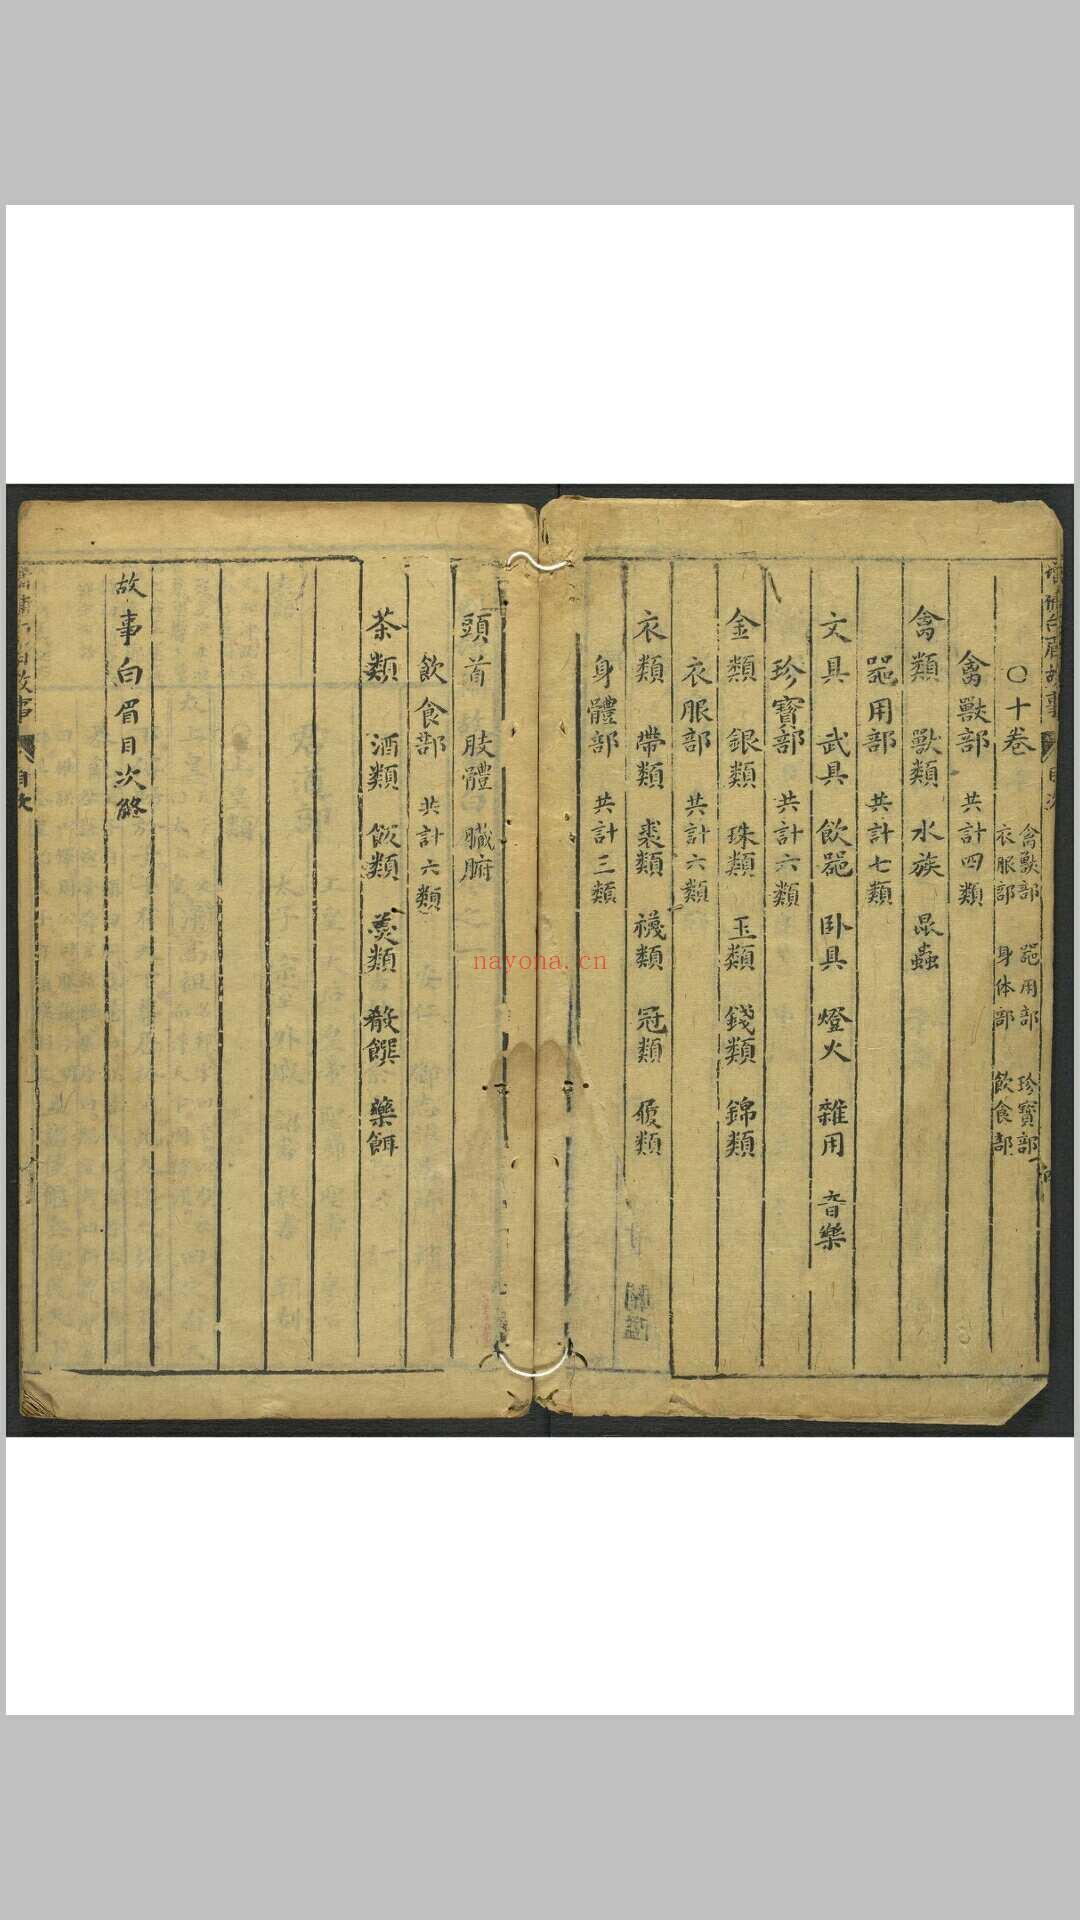 ○十卷 禽獸部 器用部 珍寶部 衣服部 身体部 飲食部
禽獸部 共計四類
禽類 獸類 水族 昆蟲
器用部 共計七類
文具 武具 飲器 卧具 燈火 雜用 音樂
珍寶部 共計六類
金類 銀類 珠類 玉類 錢類 錦類
衣服部 共計六類
衣類 帶類 裘類 襪類 冠類 履類
身體部 共計三類
頭首 肢體 臟腑
飲食部 共計六類
茶類 酒類 飯類 羹類 殽饌 藥餌
故事白眉目次終
目次
nayona.cn